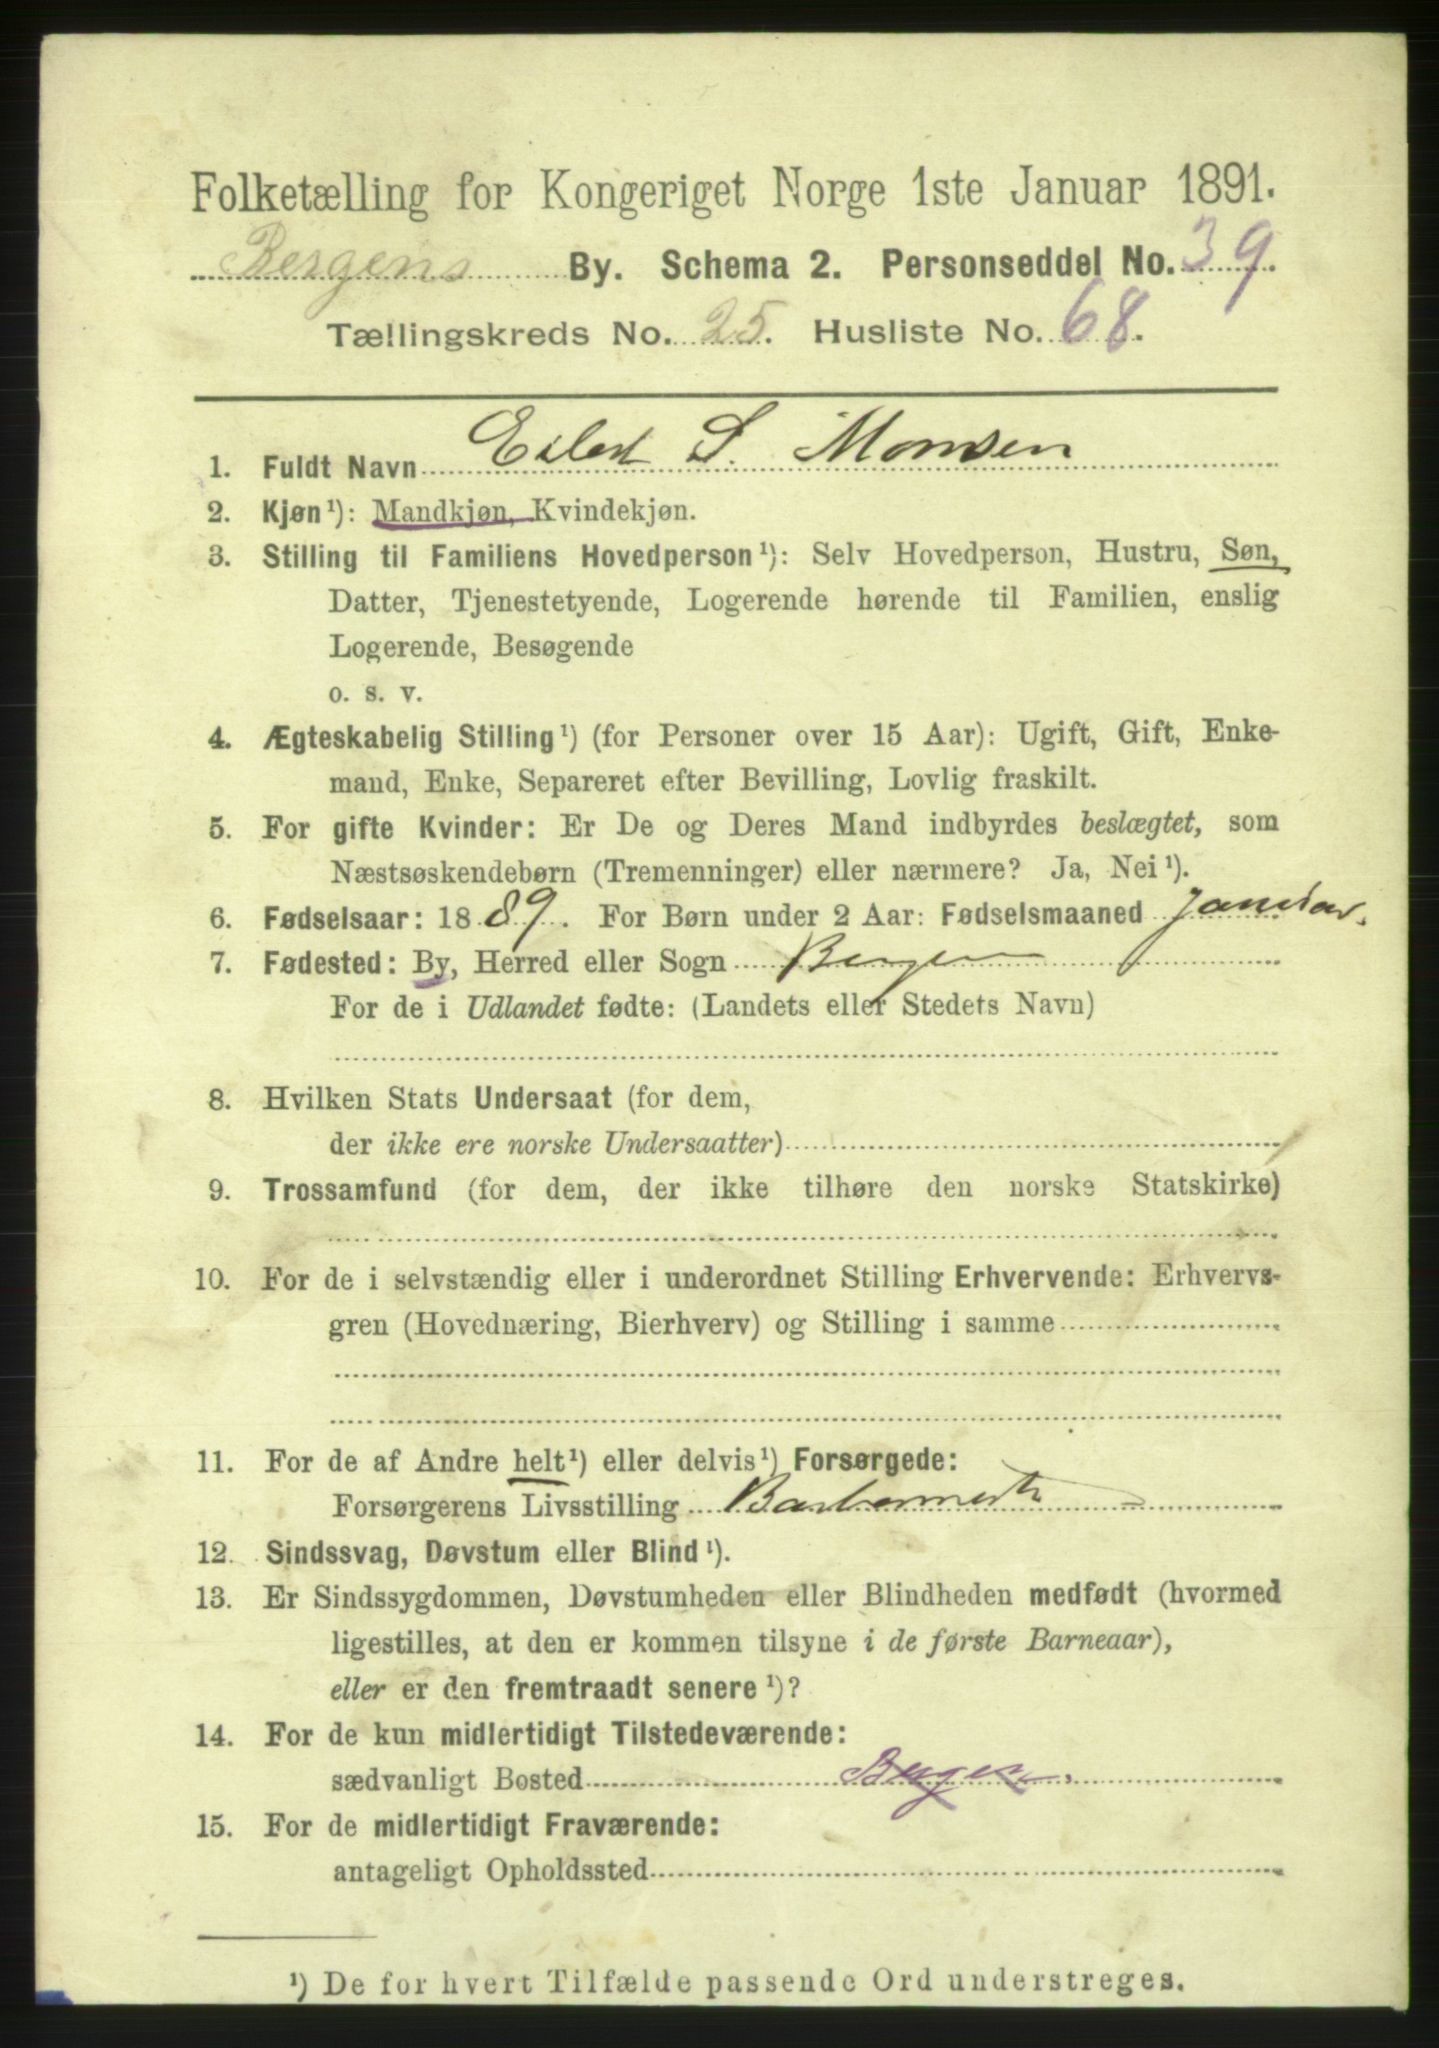 Folketælling for Kongeriget Norge 1ste Januar 1891.
Bergens By. Schema 2. Personseddel No. 39.
Tællingskreds No. 25. Husliste No. 68.
1. Fuldt Navn Eilert S. Monsen
2. Kjøn¹): Mandkjøn, Kvindekjøn.
3. Stilling til Familiens Hovedperson¹): Selv Hovedperson, Hustru, Søn,
Datter, Tjenestetyende, Logerende hørende til Familien, enslig
Logerende, Besøgende
o. s. v.
4. Ægteskabelig Stilling¹) (for Personer over 15 Aar): Ugift, Gift, Enke-
mand, Enke, Separeret efter Bevilling, Lovlig fraskilt.
5. For gifte Kvinder: Er De og Deres Mand indbyrdes beslægtet, som
Næstsøskendebørn (Tremenninger) eller nærmere? Ja, Nei¹).
6. Fødselsaar: 1889. For Børn under 2 Aar: Fødselsmaaned Januar.
7. Fødested: By, Herred eller Sogn Bergen
For de i Udlandet fødte: (Landets eller Stedets Navn)
8. Hvilken Stats Undersaat (for dem,
der ikke ere norske Undersaatter)
9. Trossamfund (for dem, der ikke tilhøre den norske Statskirke)
10. For de i selvstændig eller i underordnet Stilling Erhvervende: Erhvervs-
gren (Hovednæring, Bierhverv) og Stilling i samme
11. For de af Andre helt¹) eller delvis¹) Forsørgede:
Forsørgerens Livsstilling
12. Sindssvag, Døvstum eller Blind¹).
13. Er Sindssygdommen, Døvstumheden eller Blindheden medfødt (hvormed
ligestilles, at den er kommen tilsyne i de første Barneaar),
eller er den fremtraadt senere¹)?
14. For de kun midlertidigt Tilstedeværende:
sædvanligt Bosted Bergen.
15. For de midlertidigt Fraværende:
antageligt Opholdssted
¹) De for hvert Tilfælde passende Ord understreges.